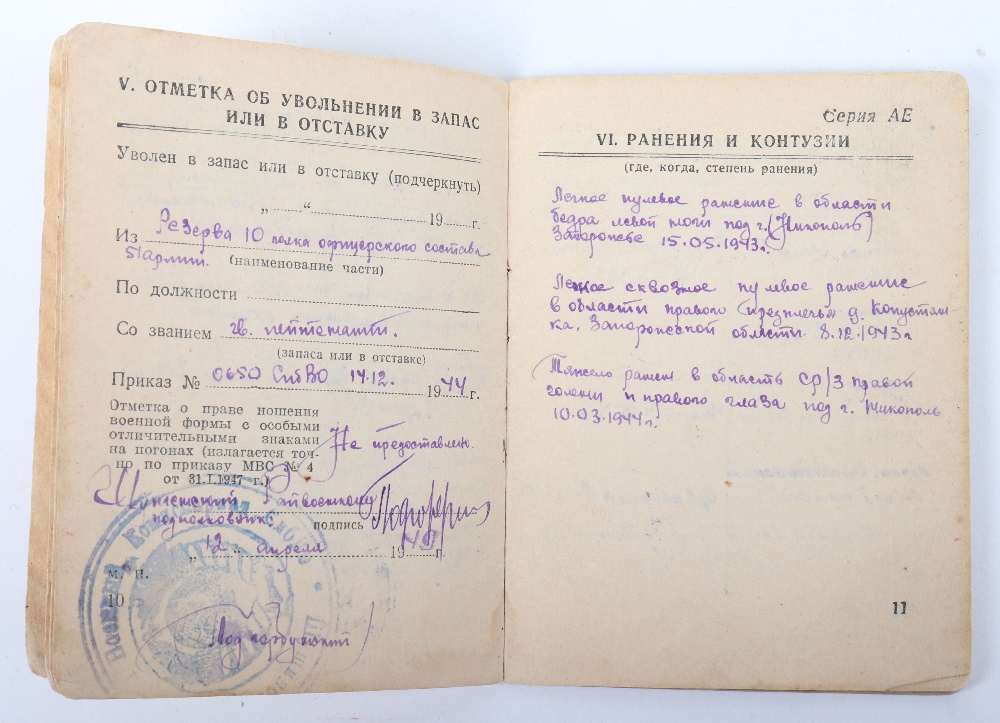 V. ОТМЕТКА ОБ УВОЛЬНЕНИИ В ЗАПАС
ИЛИ В ОТСТАВКУ
Уволен в запас или в отставку (подчеркнуть)
„ “ 19 г.
Из Резерва 10 полка офицерского состава
5 армии. (наименование части)
По должности
Со званием гв. лейтенант.
(запаса или в отставке)
Приказ № 0650 СибВО 14.12. 1944 г.
Отметка о праве ношения
военной формы с особыми
отличительными знаками
на погонах (излагается точ-
но по приказу МВС № 4
от 31.I.1947 г.)
Не предоставлено.
Райвоенком
подполковник подпись
„12“ апреля 19 49 г.
м. п.
10
Серия АЕ
VI. РАНЕНИЯ И КОНТУЗИИ
(где, когда, степень ранения)
Легкое пулевое ранение в области
бедра левой ноги под г. (Никополь)
Запорожье 15.05.1943г.
Легкое сквозное пулевое ранение
в области правого предплечья д.
Запорожской области 8.12.1943г
Тяжело ранен в область ср/3 правой
голени и правого глаза под г. Никополь
10.03.1944г.
11